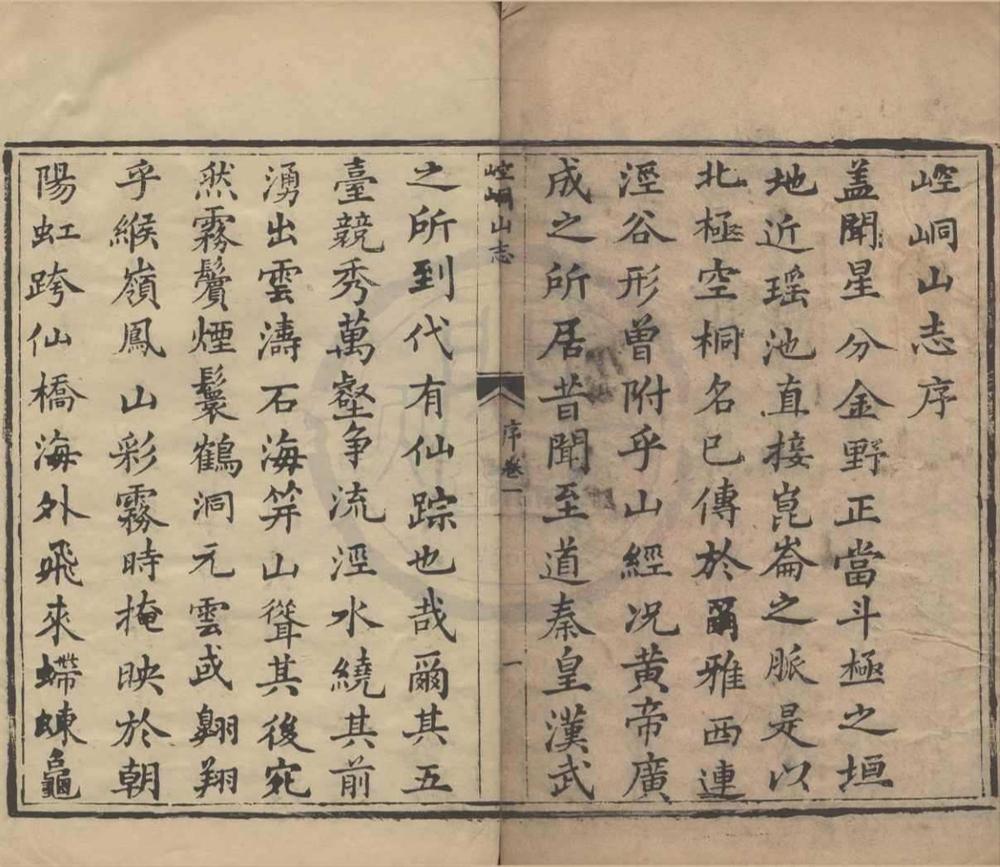 崆峒山志序
盖聞星分金野正當斗極之垣
地近瑶池直接崑崙之脈是以
北極空桐名已傳於爾雅西連
涇谷形曾附乎山經况黄帝廣
成之所居昔聞至道秦皇漢武
崆峒山志
序卷一
一
之所到代有仙踪也哉爾其五
臺競秀萬壑争流涇水繞其前
湧出雲濤石海笄山聳其後宛
然霧鬢煙鬟鶴洞元雲或翱翔
乎緱嶺鳳山彩霧時掩映於朝
陽虹跨仙橋海外飛來螮蝀龜